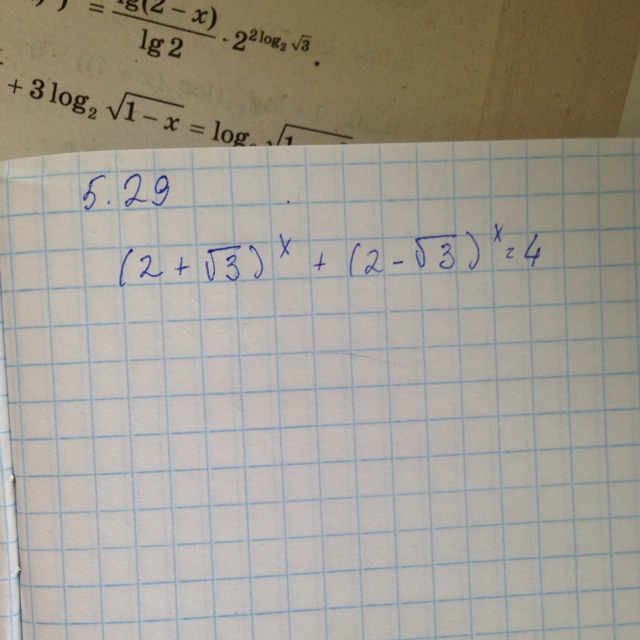 = lg(2 − x) / lg 2 · 2^(2 log₂ √3).
+ 3 log₂ √(1 − x) = log
5.29
(2 + √3)^x + (2 − √3)^x = 4